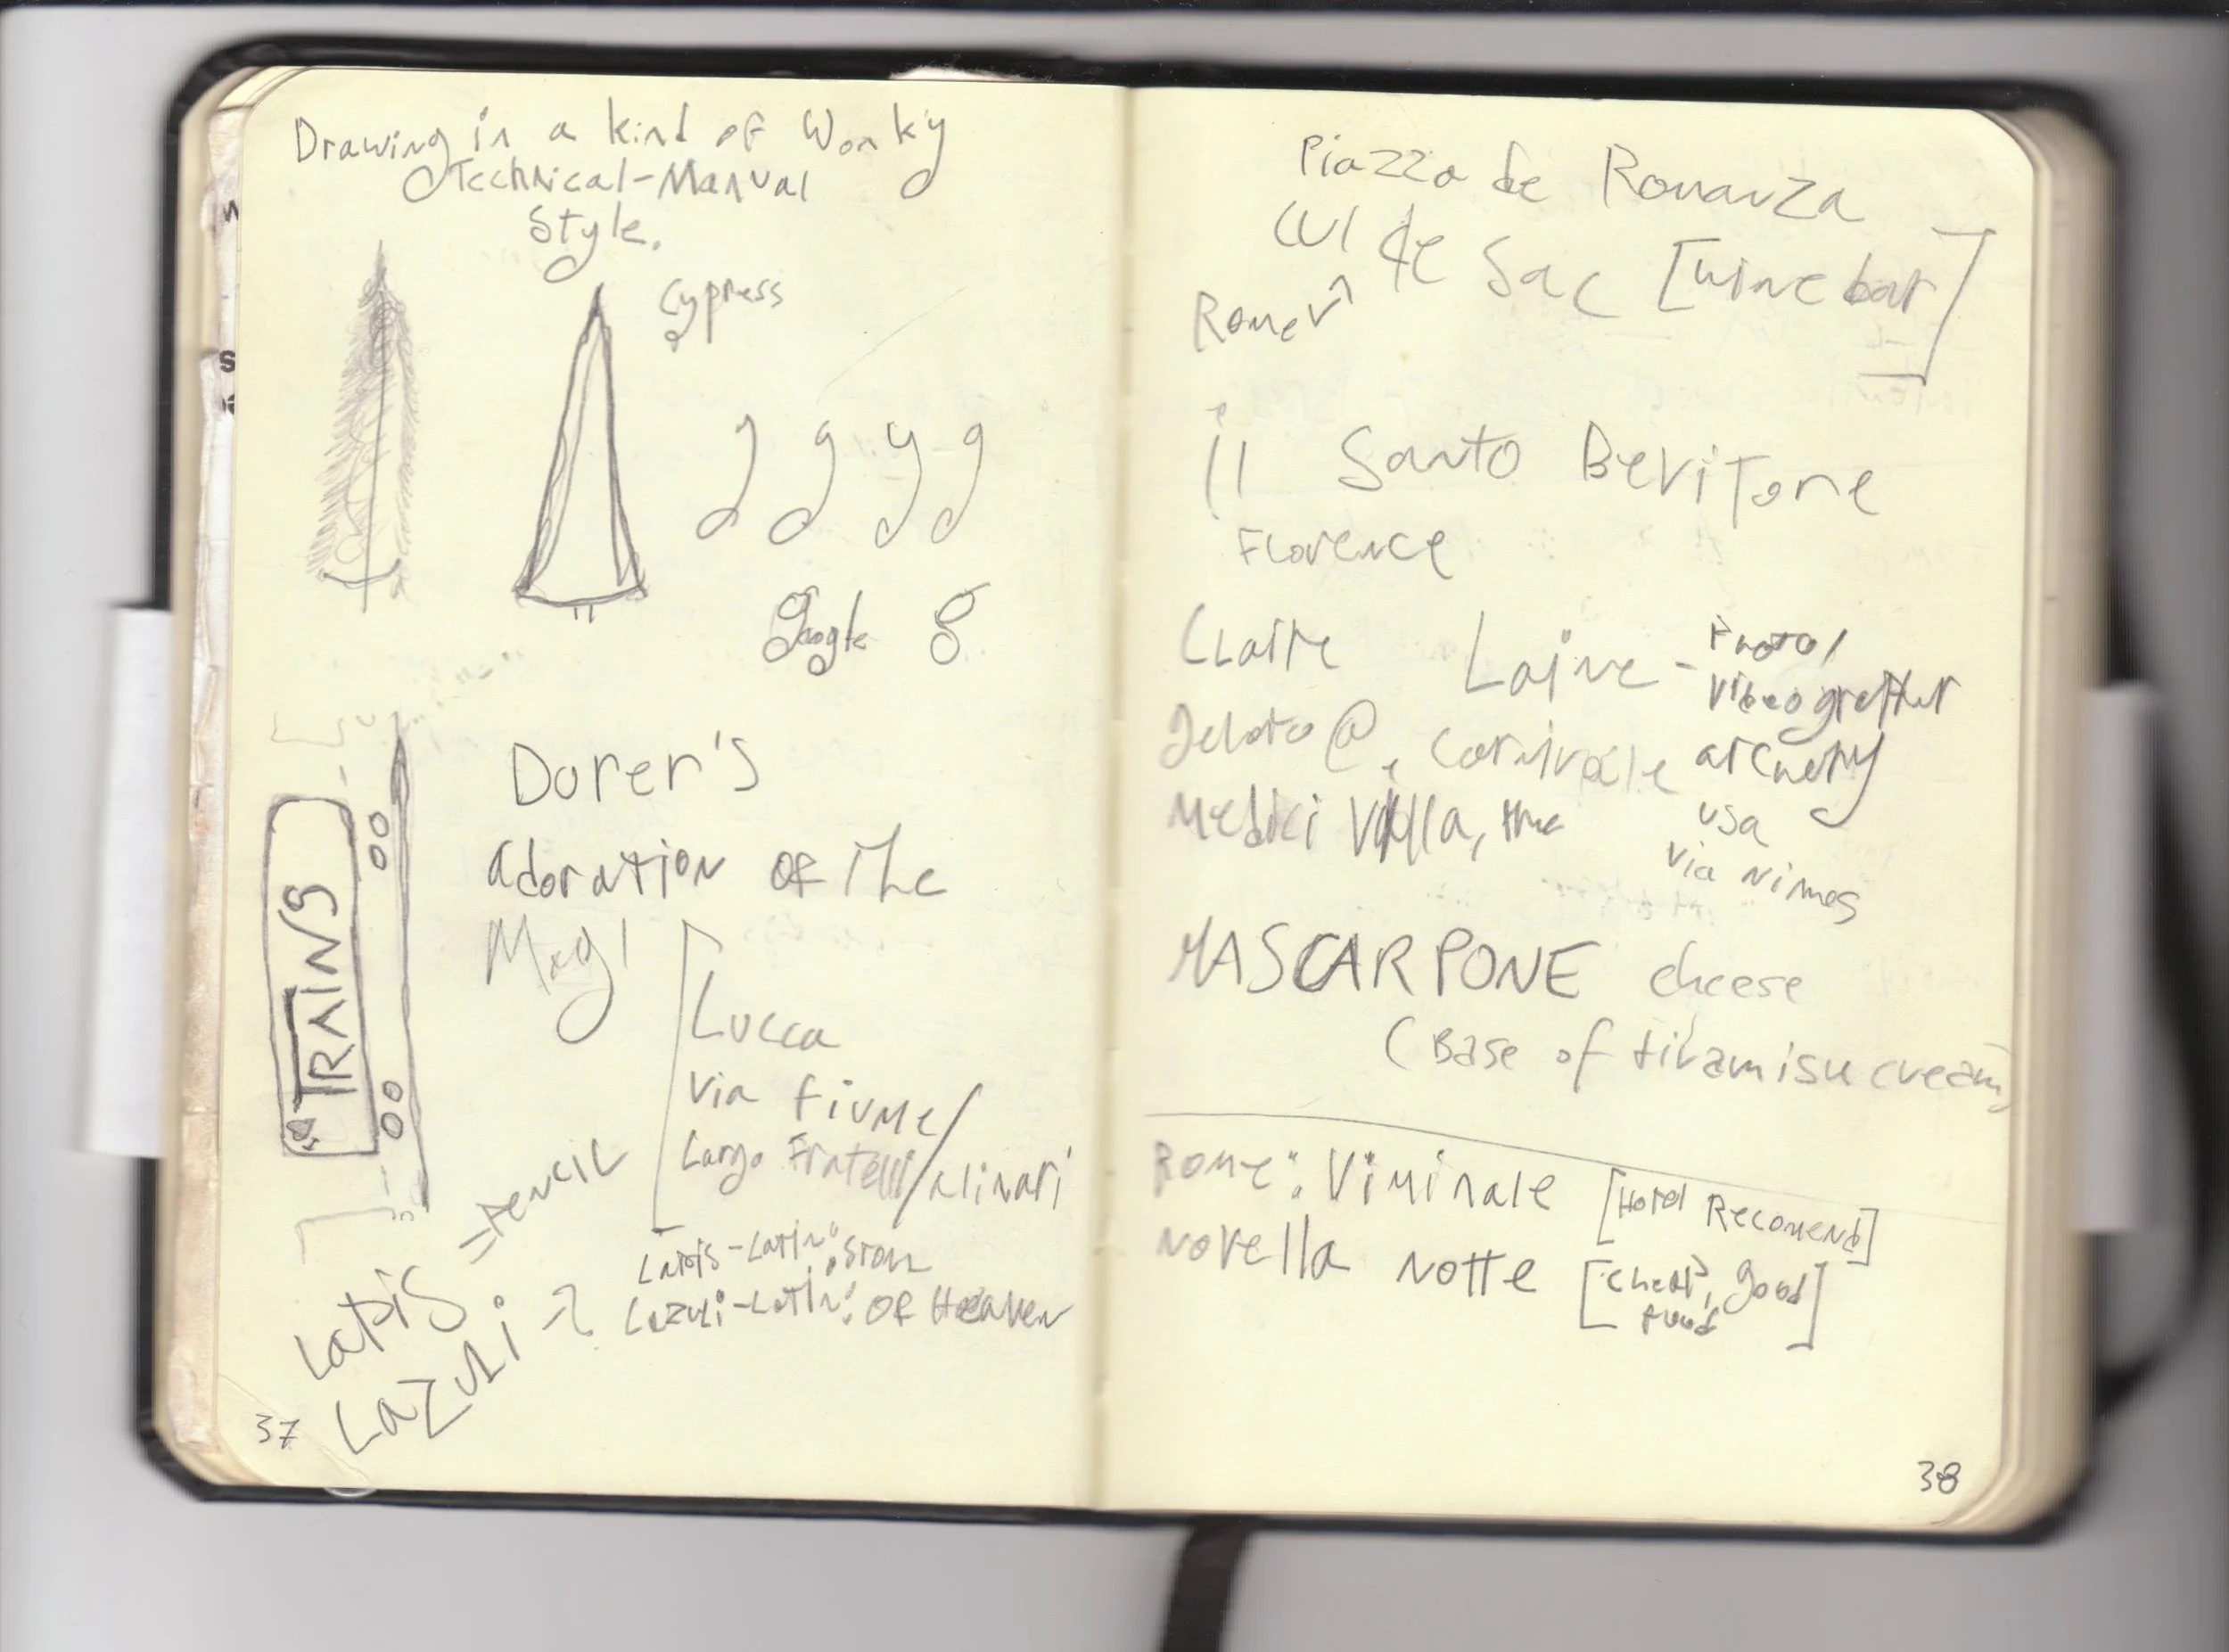 Drawing in a kind of Wonky
Technical-Manual
Style.
Cypress
g g y g
google g
TRAINS
Durer's
adoration of the
Magi
Lucca
Via fiume/
Largo Fratelli/Alinari
Lapis = Pencil
Lazuli - ?
Lapis - Latin: Stone
Lazuli - Latin: OF Heaven
37
Piazza de Romanza
Cul de Sac [wine bar]
Rome
il Santo Bevitore
Florence
Claire Laine - Photo/
Videographer
Gelato @ Carnivale archery
Medici Villa, the usa
Via Nimes
MASCARPONE cheese
(Base of tiramisu cream)
Rome: Viminale [Hotel Recomend]
Novella Notte [cheap, good
food]
38